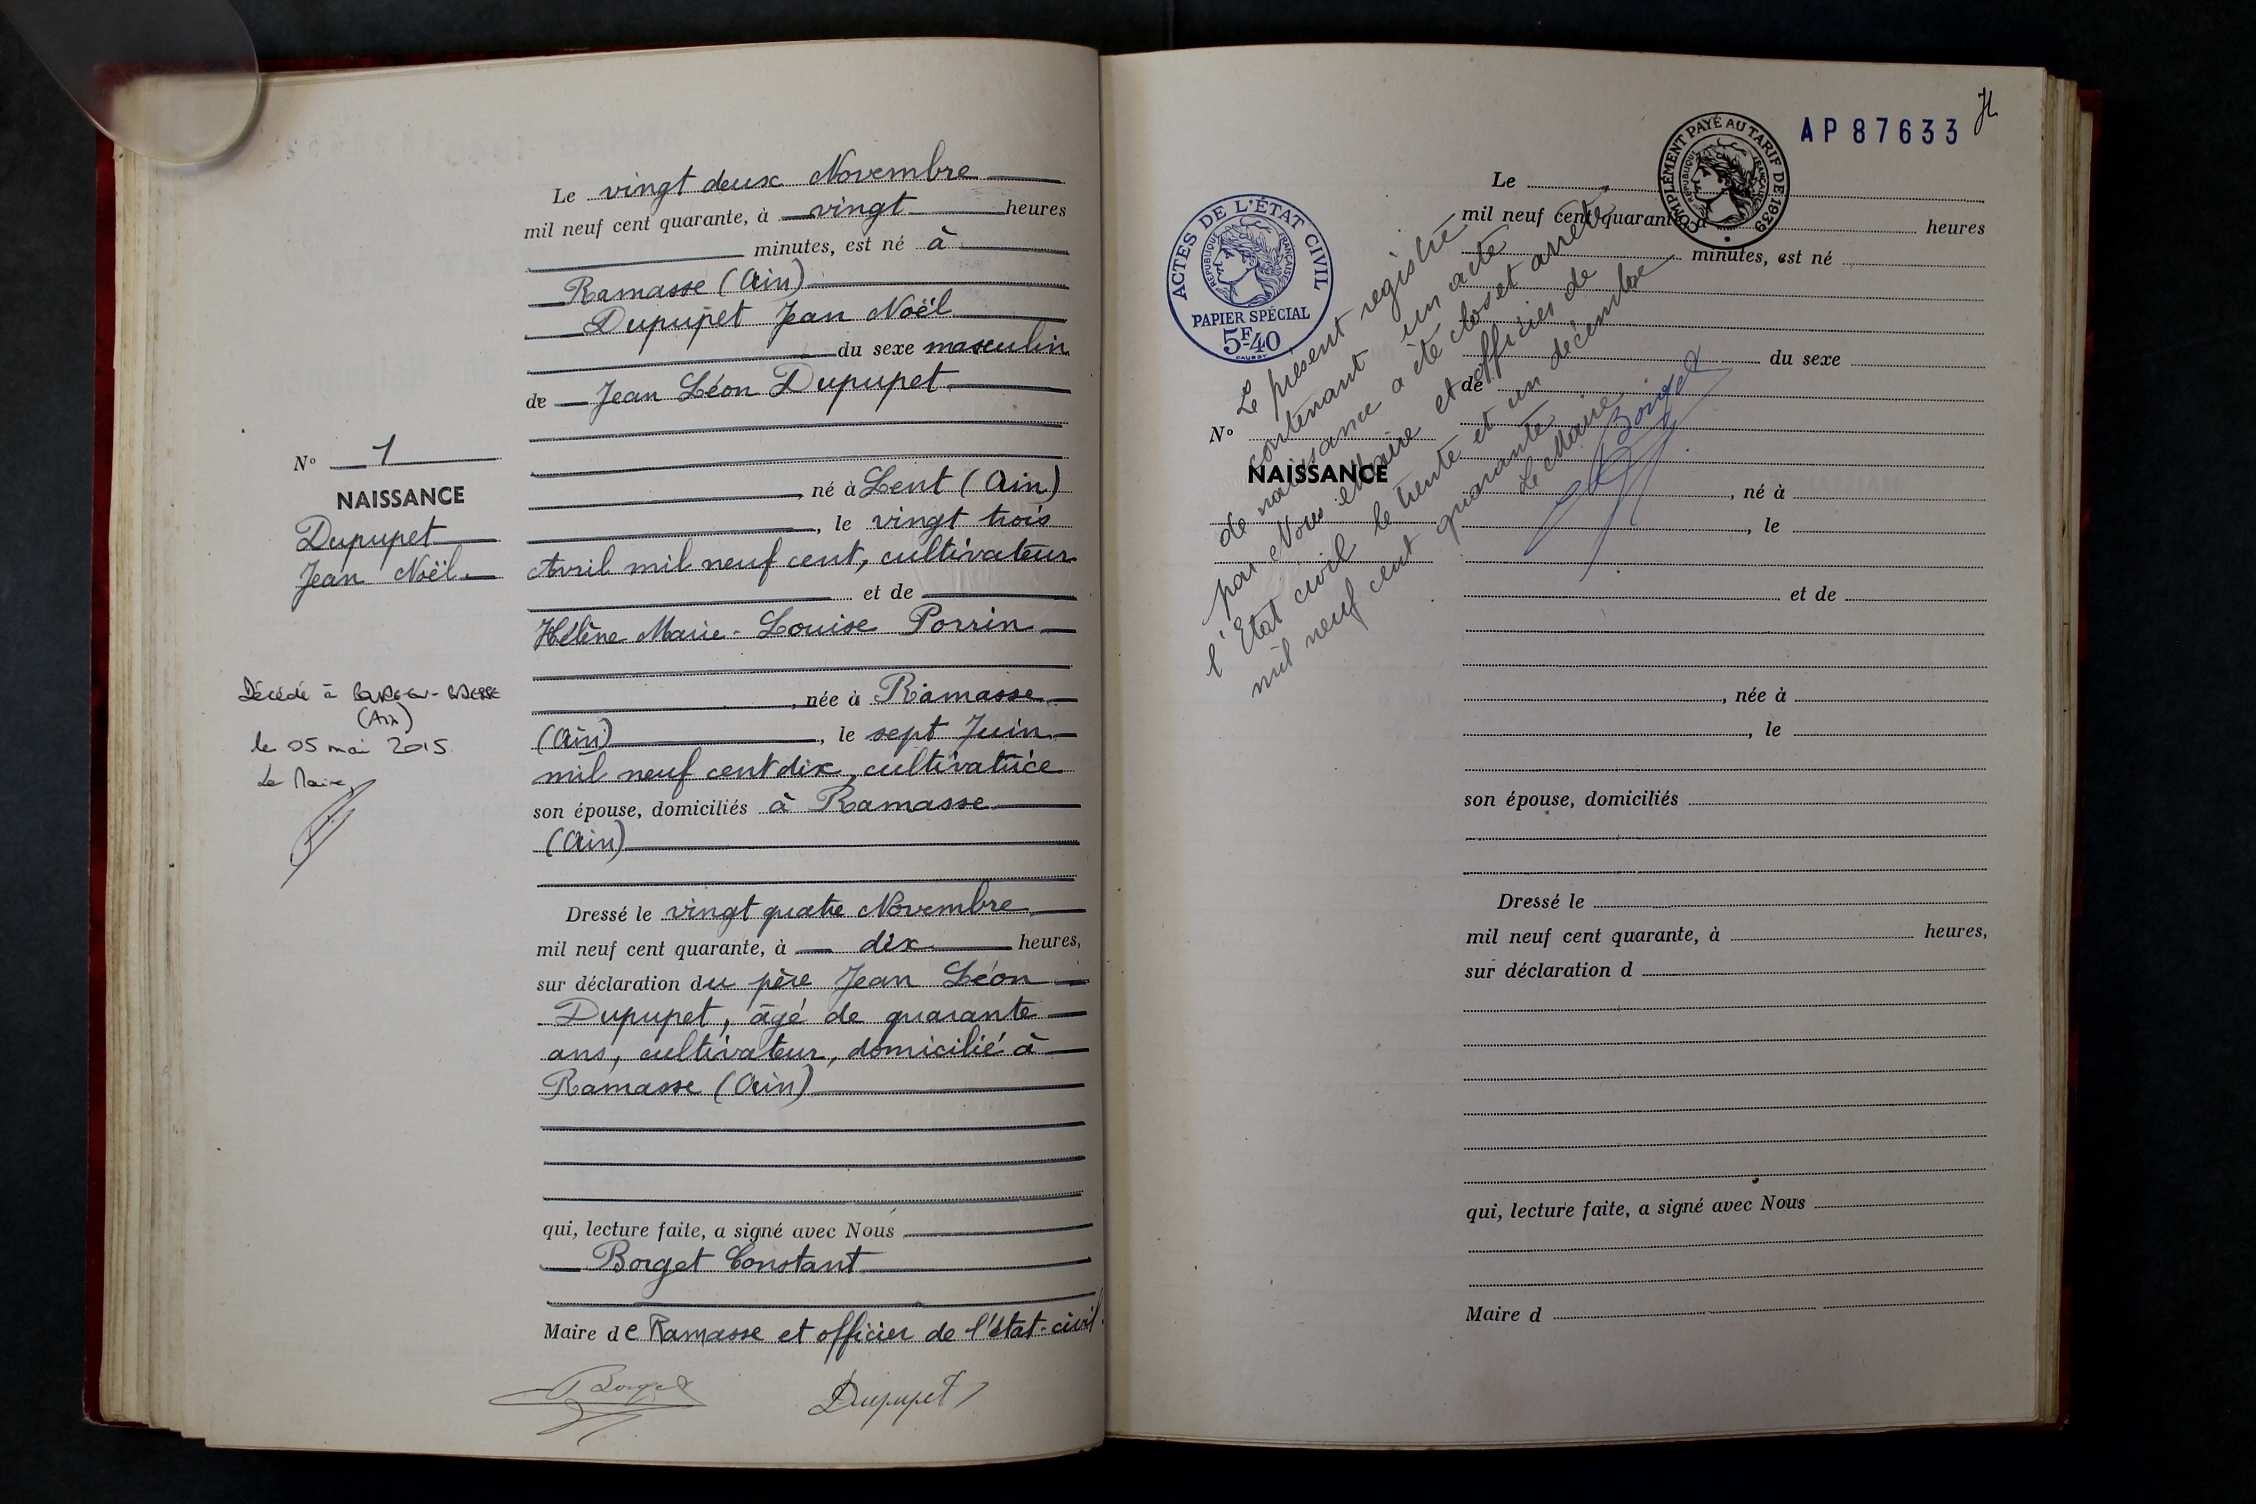 Le vingt deux Novembre
mil neuf cent quarante, à vingt heures
minutes, est né à
Ramasse (Ain)
Dupupet Jean Noël
du sexe masculin
de Jean Léon Dupupet
, né à Lent (Ain)
, le vingt trois
Avril mil neuf cent, cultivateur
et de
Hélène Marie-Louise Porrin
, née à Ramasse
(Ain), le sept Juin
mil neuf cent dix, cultivatrice
son épouse, domiciliés à Ramasse
(Ain)
Dressé le vingt quatre Novembre
mil neuf cent quarante, à dix heures,
sur déclaration du père Jean Léon
Dupupet, âgé de quarante
ans, cultivateur, domicilié à
Ramasse (Ain)
qui, lecture faite, a signé avec Nous
Borget Constant
Maire de Ramasse et officier de l'état-civil.
Borget
Dupupet
No 1
NAISSANCE
Dupupet
Jean Noël
Décédé à BOURG-EN-BRESSE
(Ain)
le 05 mai 2015
Le Maire
AP87633
COMPLÉMENT PAYÉ AU TARIF DE 1939
RÉPUBLIQUE FRANÇAISE
ACTES DE L'ÉTAT CIVIL
RÉPUBLIQUE FRANÇAISE
PAPIER SPÉCIAL
5F.40
Le présent registre
contenant un acte
de naissance a été clos et arrêté
par Nous Maire et officier de
l'Etat civil le trente et un décembre
mil neuf cent quarante
Le Maire
Borget
No
NAISSANCE
Le
mil neuf cent quarante, à heures
minutes, est né
du sexe
de
, né à
, le
et de
, née à
, le
son épouse, domiciliés
Dressé le
mil neuf cent quarante, à heures,
sur déclaration d
qui, lecture faite, a signé avec Nous
Maire d